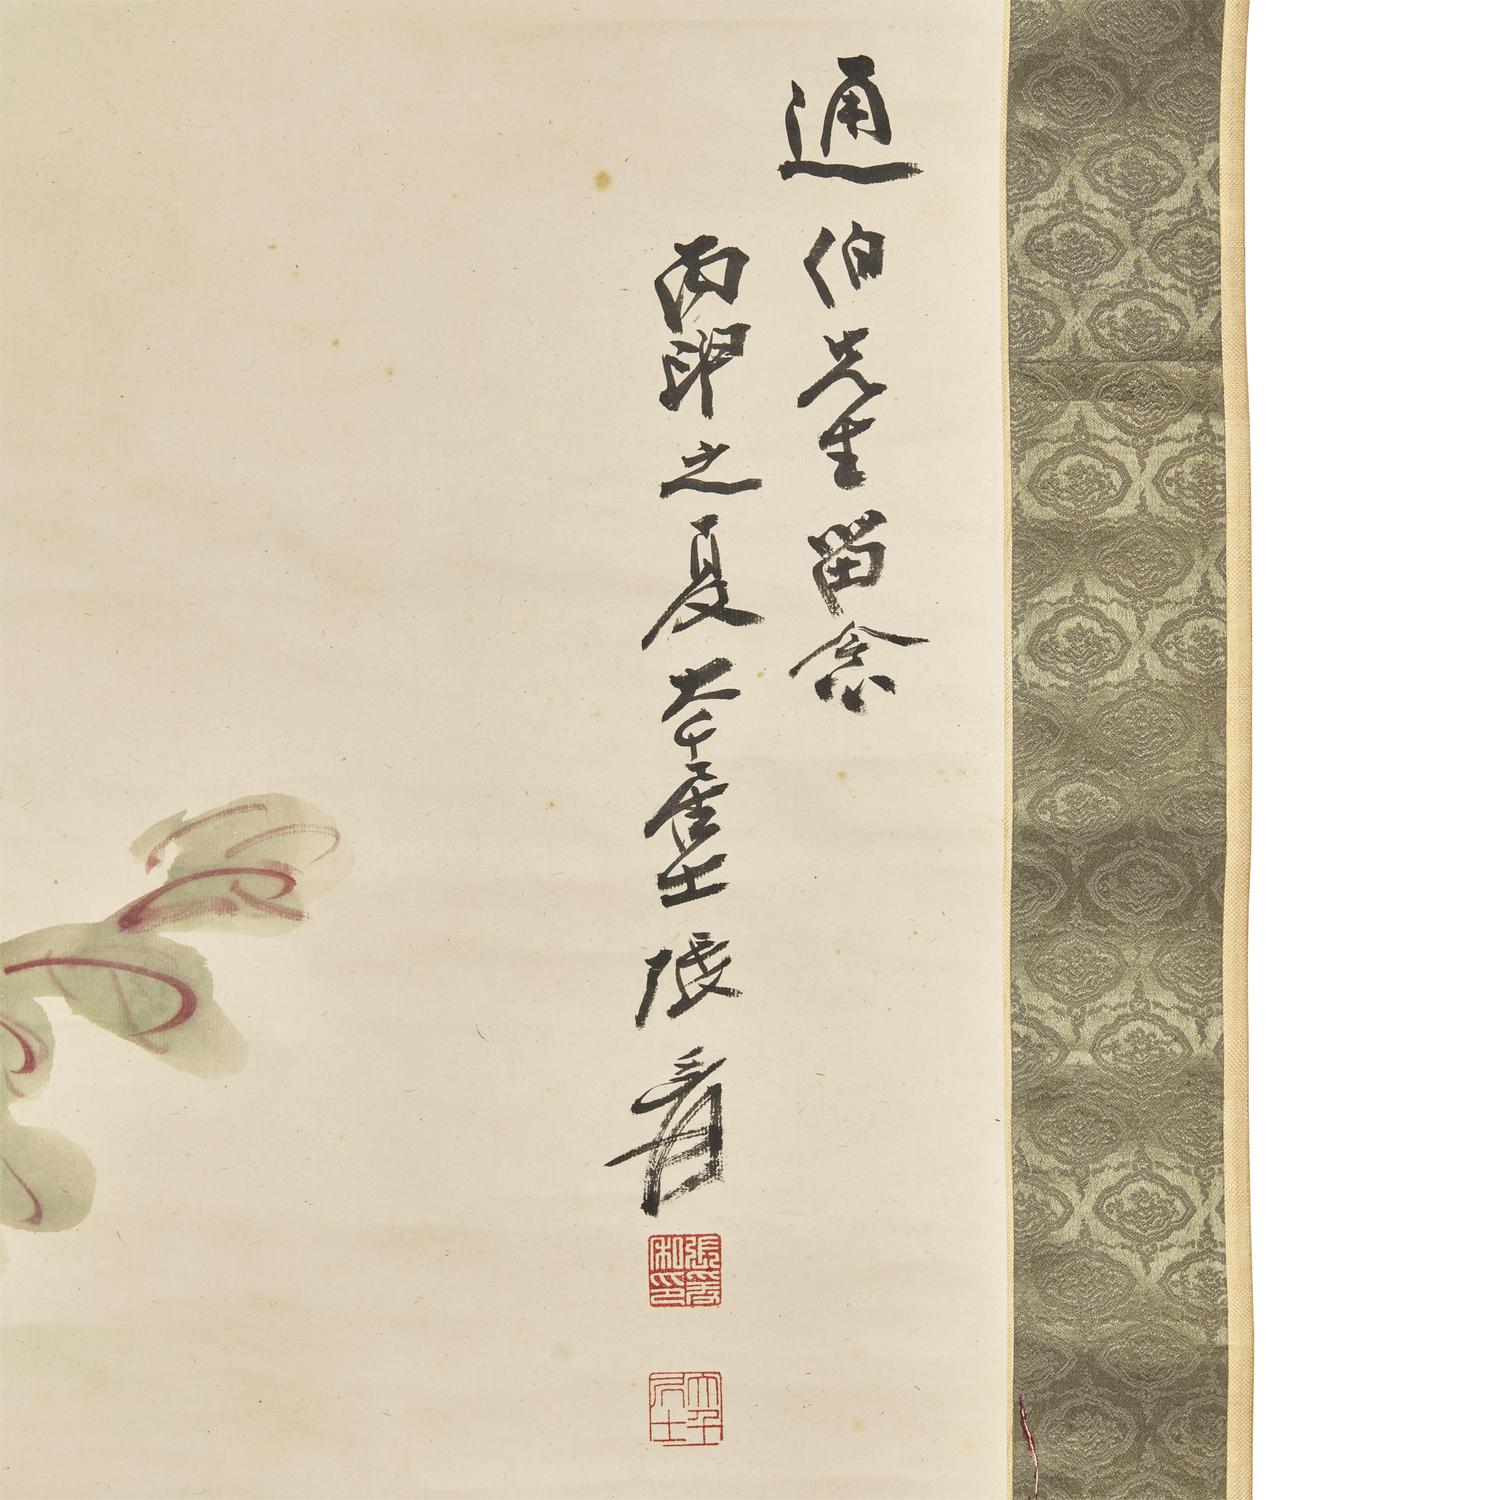 通伯先生留念
丙申之夏大千居士張爰
張爰私印
大千居士